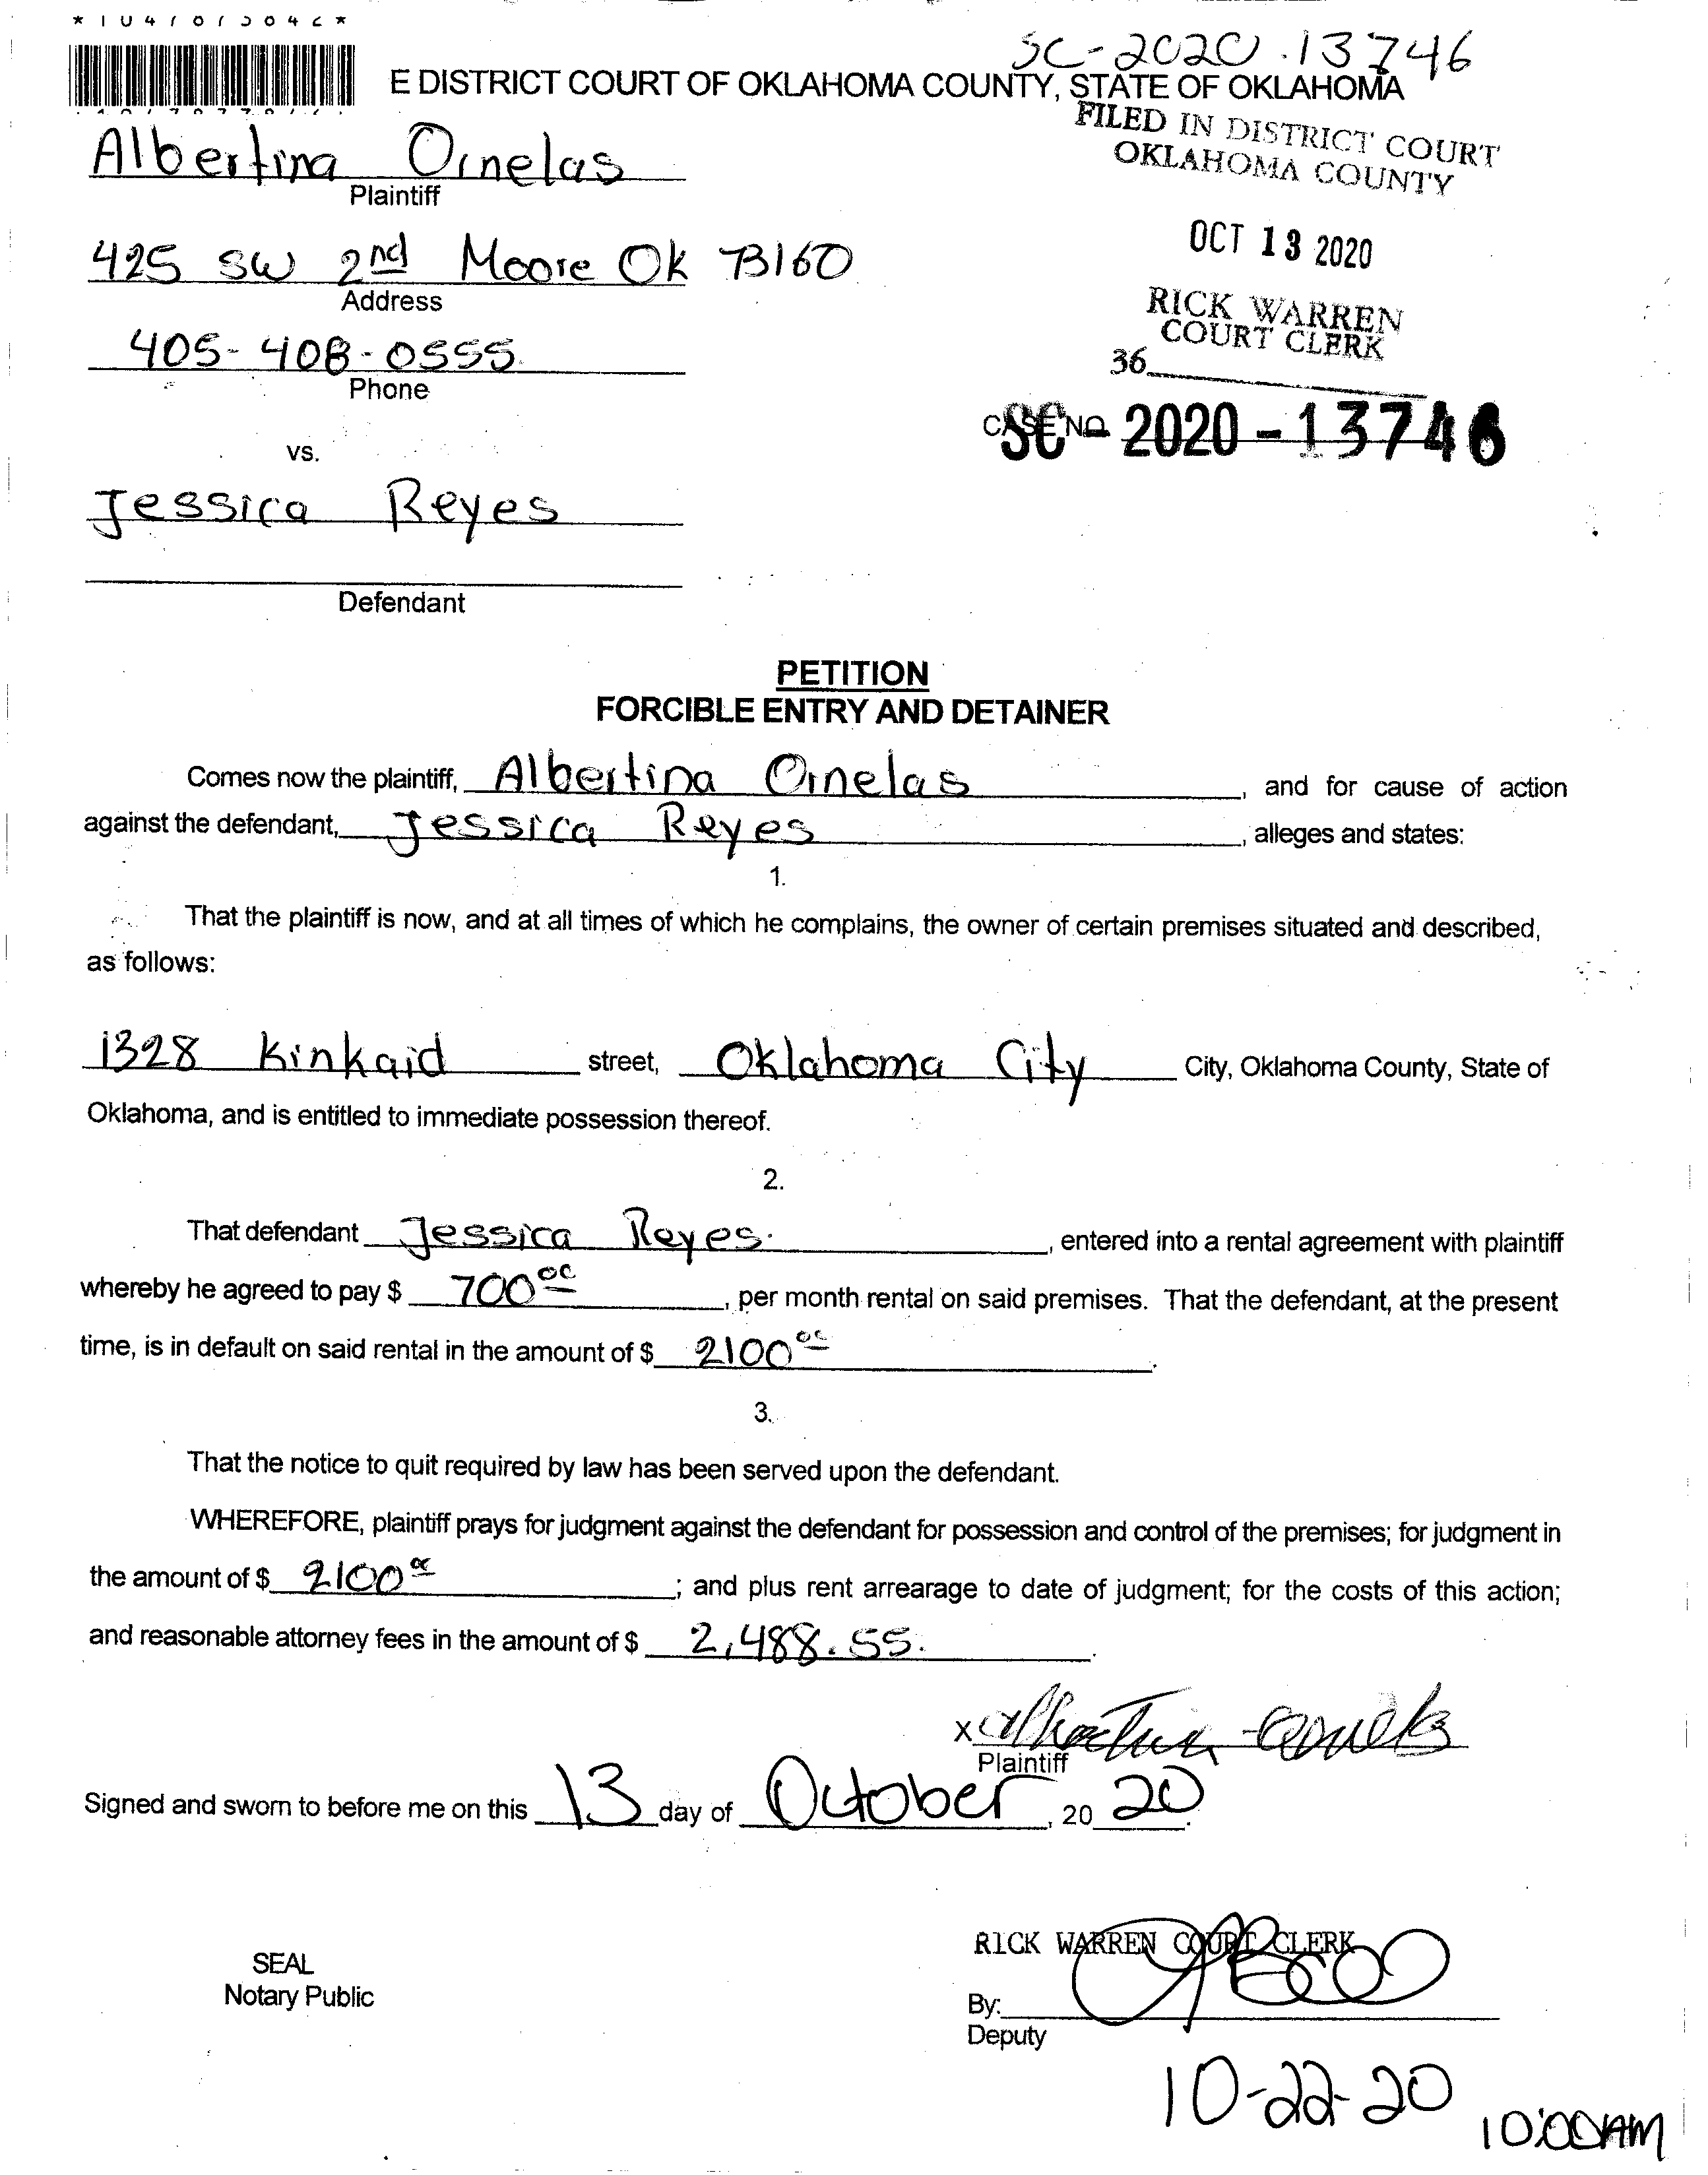 SC-2020-13746
E DISTRICT COURT OF OKLAHOMA COUNTY, STATE OF OKLAHOMA
FILED IN DISTRICT COURT
OKLAHOMA COUNTY
Albertina Ornelas
Plaintiff
OCT 13 2020
425 SW 2nd Moore Ok 73160
Address
RICK WARREN
COURT CLERK
405-408-0555
Phone
36
CASE NO. SC-2020-13746
vs.
Jessica Reyes
Defendant
PETITION
FORCIBLE ENTRY AND DETAINER
Comes now the plaintiff, Albertina Ornelas, and for cause of action
against the defendant, Jessica Reyes, alleges and states:
1.
That the plaintiff is now, and at all times of which he complains, the owner of certain premises situated and described,
as follows:
1328 Kinkaid street, Oklahoma City City, Oklahoma County, State of
Oklahoma, and is entitled to immediate possession thereof.
2.
That defendant Jessica Reyes, entered into a rental agreement with plaintiff
whereby he agreed to pay $ 700.00, per month rental on said premises. That the defendant, at the present
time, is in default on said rental in the amount of $ 2100.00.
3.
That the notice to quit required by law has been served upon the defendant.
WHEREFORE, plaintiff prays for judgment against the defendant for possession and control of the premises; for judgment in
the amount of $ 2100.00; and plus rent arrearage to date of judgment; for the costs of this action;
and reasonable attorney fees in the amount of $ 2,488.55.
x Albertina Ornelas
Plaintiff
Signed and sworn to before me on this 13 day of October, 20 20.
RICK WARREN COURT CLERK
SEAL
Notary Public
By:
Deputy
10-22-20
10:00AM